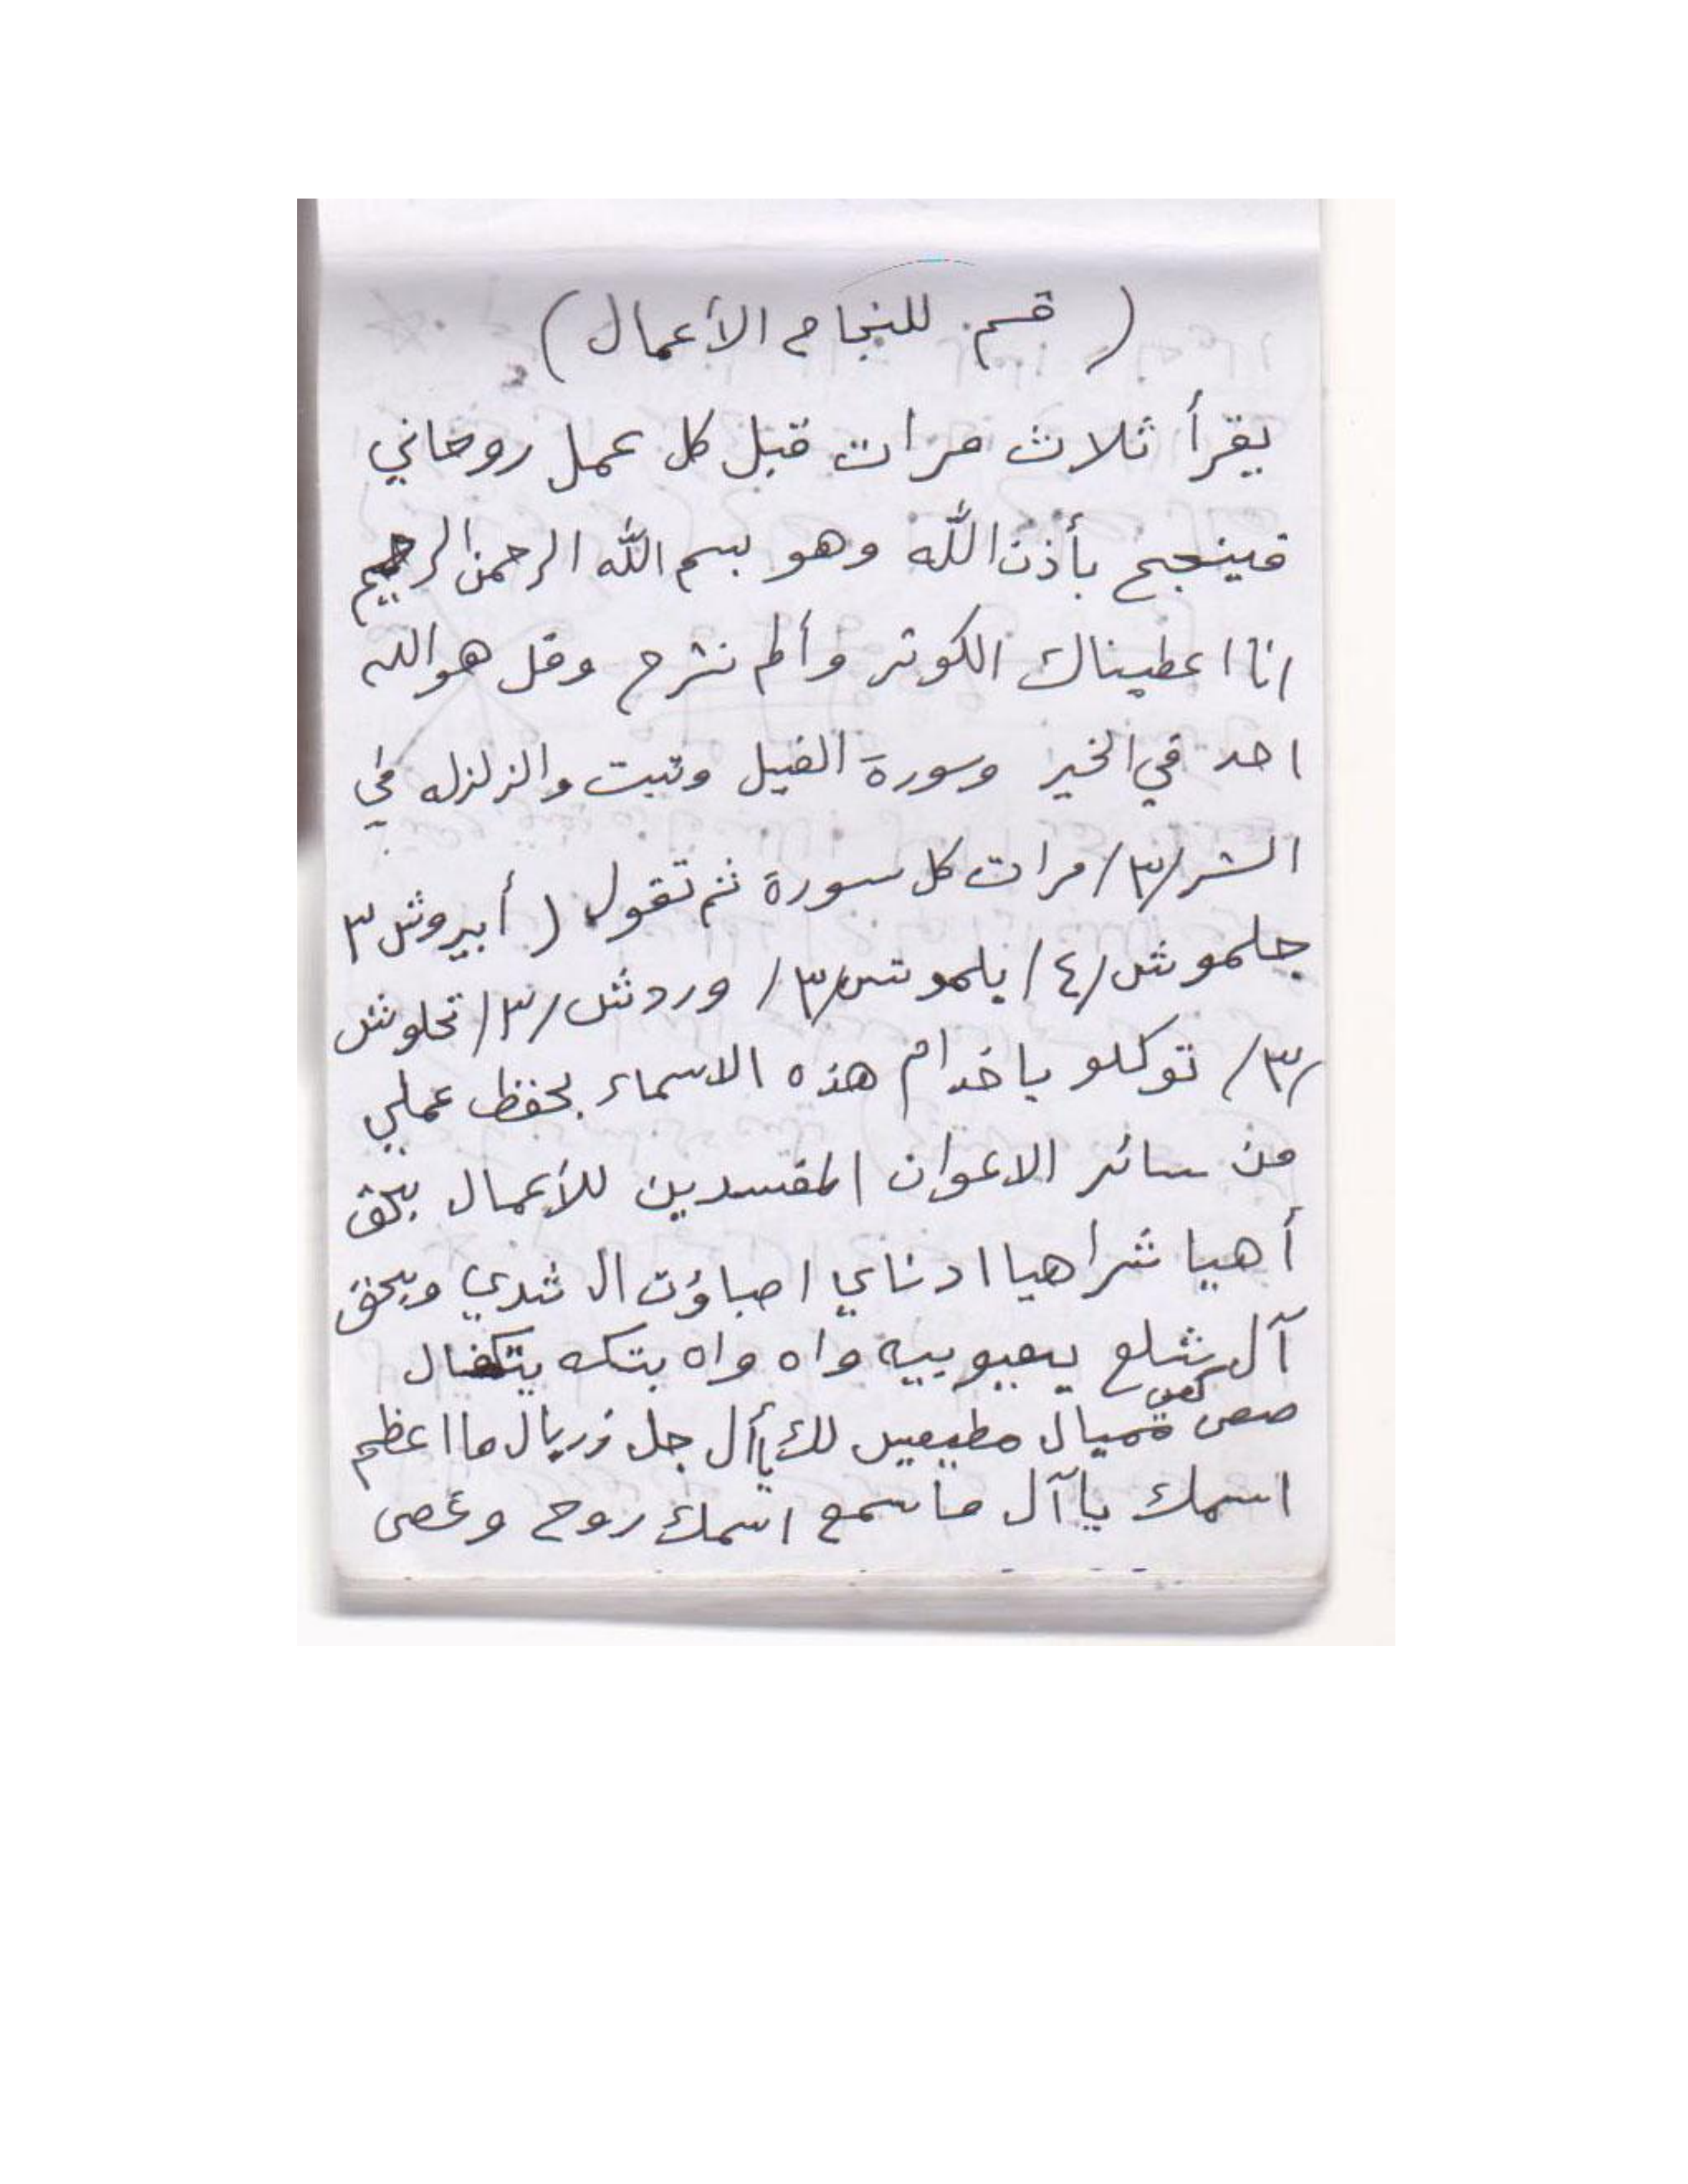 ( قسم للنجاح الأعمال )
يقرأ ثلاث مرات قبل كل عمل روحاني
فينجح بأذن الله وهو بسم الله الرحمن الرحيم
انا اعطيناك الكوثر وألم نشرح وقل هو الله
احد في الخير وسورة الفيل وتبت والزلزله في
الشر /٣/ مرات كل سورة ثم تقول ( أبيروش ٣
جلموش /٤/ يلموش /٣/ وردش /٣/ تحلوش
/٣/ توكلو ياخدام هذه الاسماء بحفظ عملي
من سائر الاعوان المفسدين للأعمال بحق
أهيا شراهيا ادناي اصباؤت ال شدي وبحق
آل شلع يعيوبيه واه واه بتكه
صعى مطيعين لك يا أل جل زريال ما اعظم
اسمك يا آل ماسمع اسمك روح وعصى